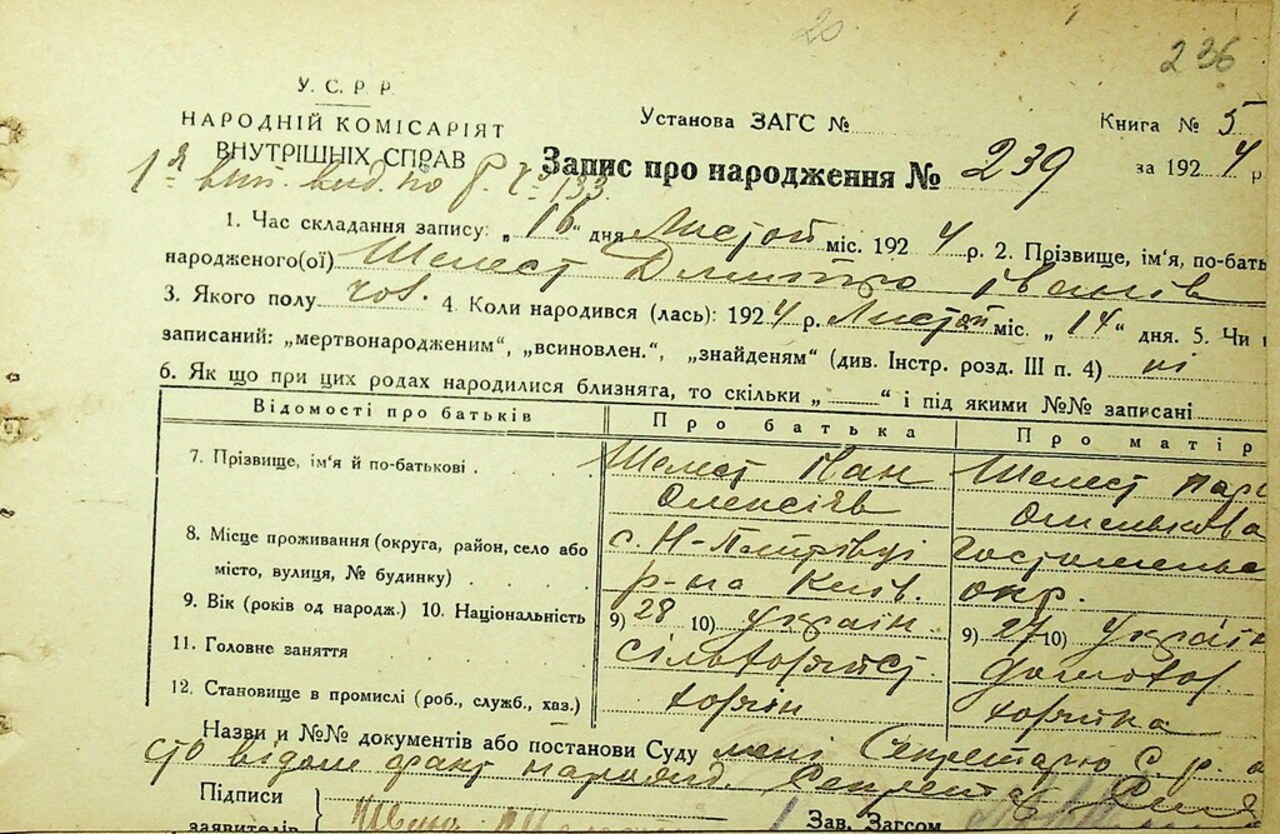 20
236
У. С. Р. Р.
НАРОДНІЙ КОМІСАРІЯТ
ВНУТРІШНІХ СПРАВ
Установа ЗАГС №
Книга № 5
Запис про народження № 239
за 1924 р
1. Час складання запису: „16“ дня Листоп міс. 1924 р. 2. Прізвище, ім'я, по-бать
народженого(ої) Шелест Дмитро Іванів
3. Якого полу чол. 4. Коли народився (лась): 1924 р. Листоп міс. „14“ дня. 5. Чи
записаний: „мертвонародженим“, „всиновлен.“, „знайденям“ (див. Інстр. розд. III п. 4) ні
6. Як що при цих родах народилися близнята, то скільки „ “ і під якими №№ записані
Відомості про батьків
Про батька
Про матір
7. Прізвище, ім'я й по-батькові
Шелест Іван
Олексіїв
Шелест Пар
8. Місце проживання (округа, район, село або
місто, вулиця, № будинку)
с. Н-Петрівці
р-на Київ.
окр.
9. Вік (років од народж.) 10. Національність
9) 28 10) Україн.
9) 27 10) Україн
11. Головне заняття
12. Становище в промислі (роб., служб., хаз.)
Назви и №№ документів або постанови Суду мені Секретарю С. р.
відом факт народж. Секретар
Підписи
заявителів
Зав. Загсом